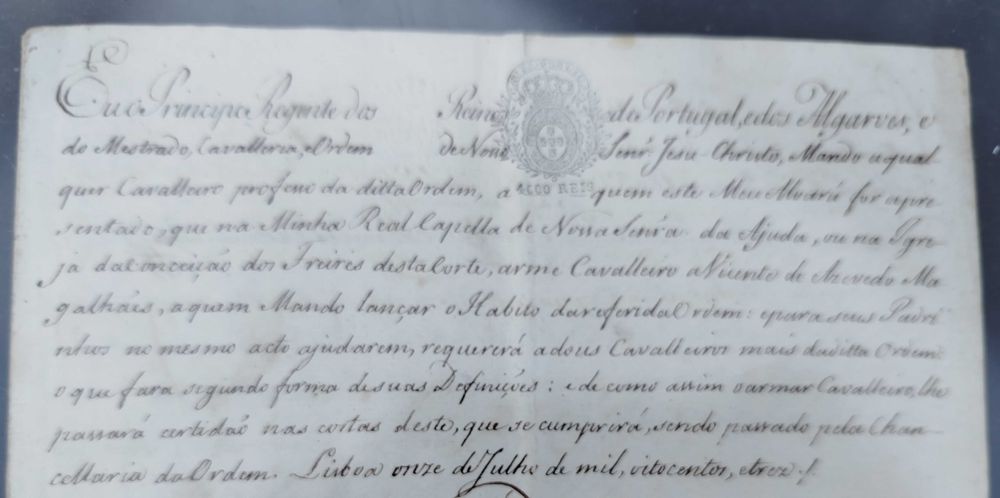 Eu o Principe Regente dos Reinos de Portugal, e dos Algarves, e
do Mestrado, Cavallaria, e Ordem de Nosso Senr. Jesu Christo, Mando a qual
quer Cavalleiro professo da ditta Ordem, a quem este Meu Alvará for apre
sentado, que na Minha Real Capella de Nossa Senrã da Ajuda, ou na Igre
ja da Conceição dos Freires desta Corte, arme Cavalleiro a Vicente de Azevedo Ma
galhães, a quem Mando lançar o Habito da referida Ordem: e para seus Padri
nhos no mesmo acto ajudarem, requererá a dous Cavalleiros mais da ditta Ordem
o que fara segundo forma de suas Definições: e de como assim o armar Cavalleiro, lhe
passará certidão nas costas deste, que se cumprirá, sendo passado pela Chan-
cellaria da Ordem. Lisboa onze de Julho de mil, oitocentos, e trez.
REIS